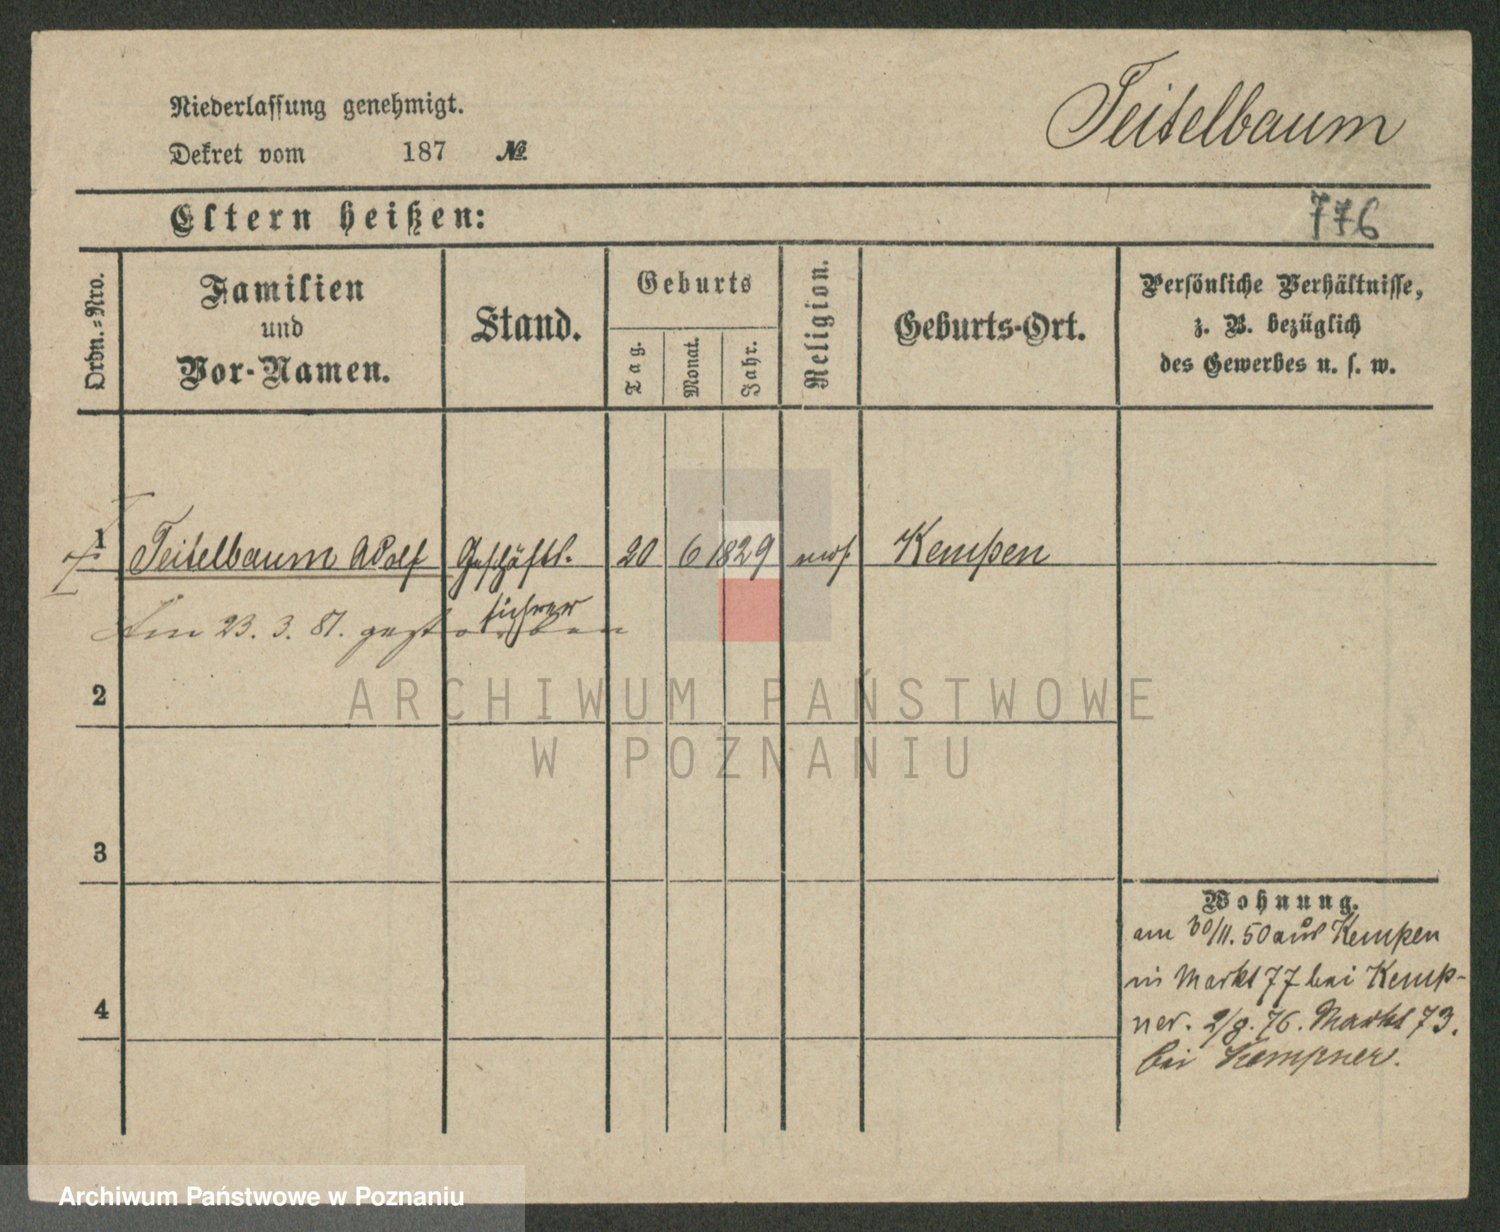 Niederlassung genehmigt.
Dekret vom 187 №
Teitelbaum
Eltern heißen:
776
Ordn.=Nro.
Familien
und
Vor-Namen.
Stand.
Geburts
Tag.
Monat.
Jahr.
Religion.
Geburts-Ort.
Persönliche Verhältnisse,
z. B. bezüglich
des Gewerbes u. s. w.
1 Teitelbaum Adolf Geschäfts- 20 6 1829 mos Kempen
führer
Am 23. 3. 81. gestorben
2
ARCHIWUM PAŃSTWOWE
W POZNANIU
3
4
Wohnung.
am 30/11. 50 aus Kempen
in Markt 77 bei Kemp-
ner. 2/9. 76. Markt 73.
bei Kempner.
Archiwum Państwowe w Poznaniu